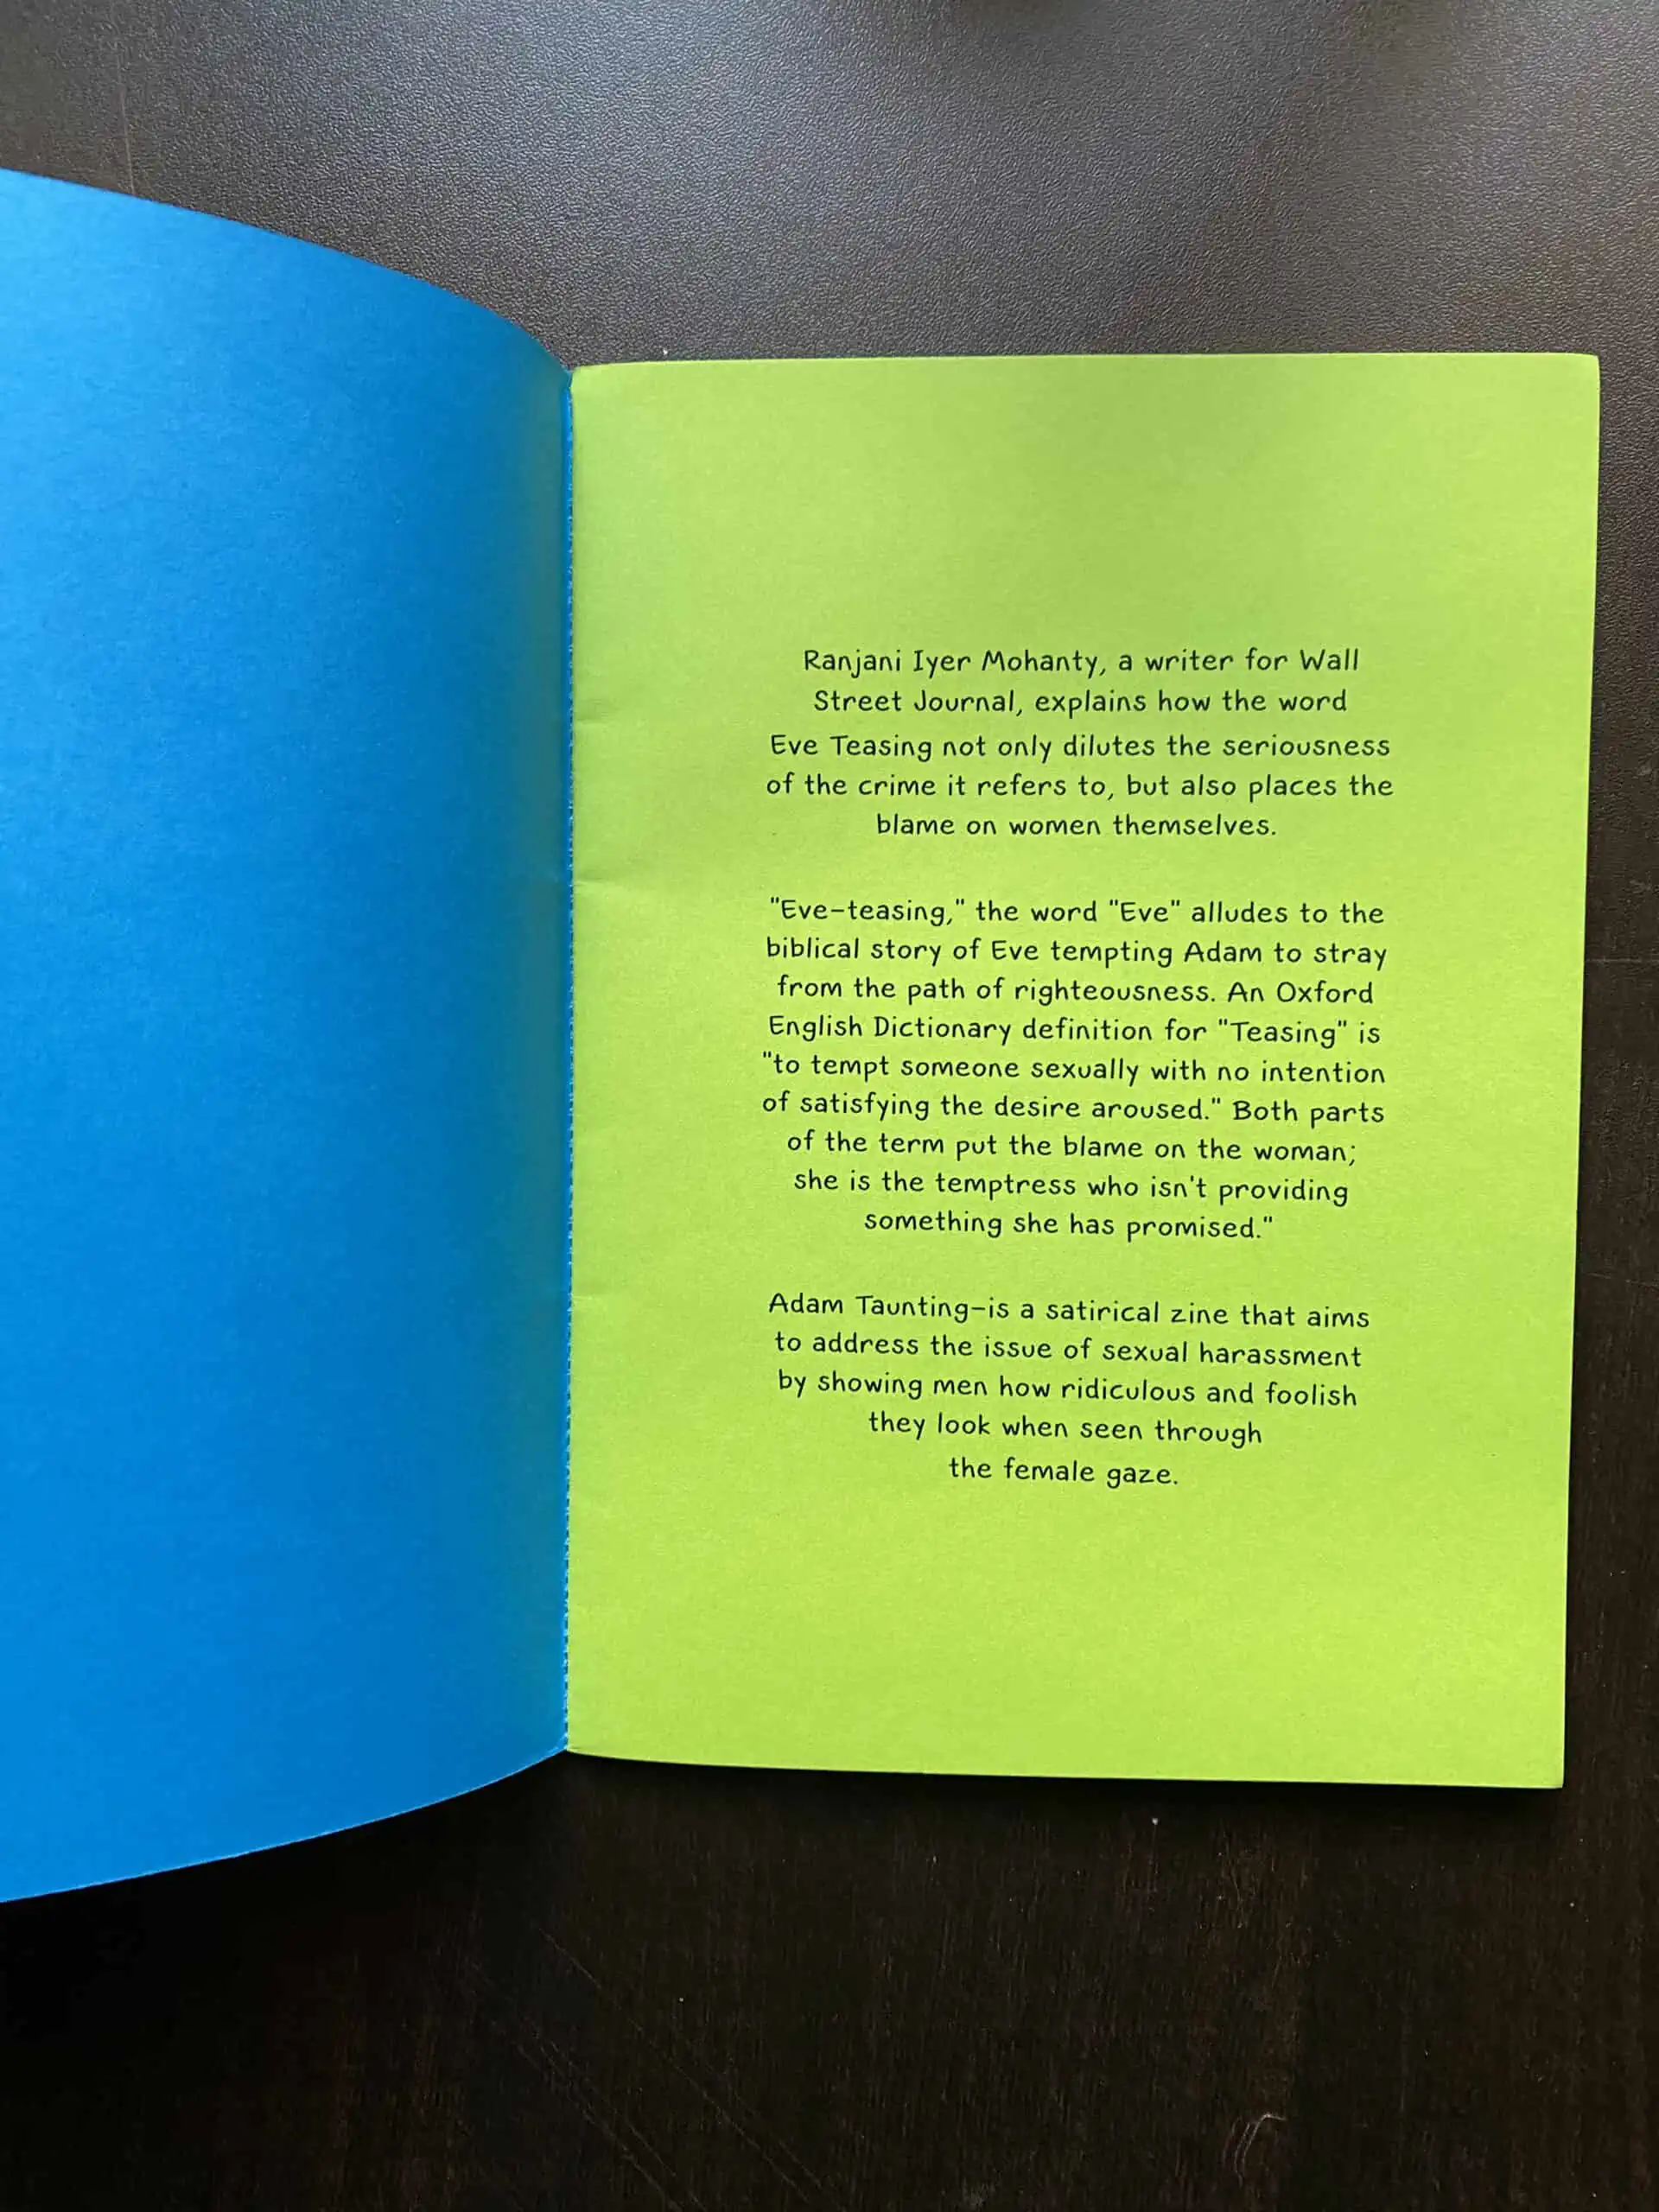 Ranjani Iyer Mohanty, a writer for Wall
Street Journal, explains how the word
Eve Teasing not only dilutes the seriousness
of the crime it refers to, but also places the
blame on women themselves.
"Eve-teasing," the word "Eve" alludes to the
biblical story of Eve tempting Adam to stray
from the path of righteousness. An Oxford
English Dictionary definition for "Teasing" is
"to tempt someone sexually with no intention
of satisfying the desire aroused." Both parts
of the term put the blame on the woman;
she is the temptress who isn't providing
something she has promised."
Adam Taunting-is a satirical zine that aims
to address the issue of sexual harassment
by showing men how ridiculous and foolish
they look when seen through
the female gaze.